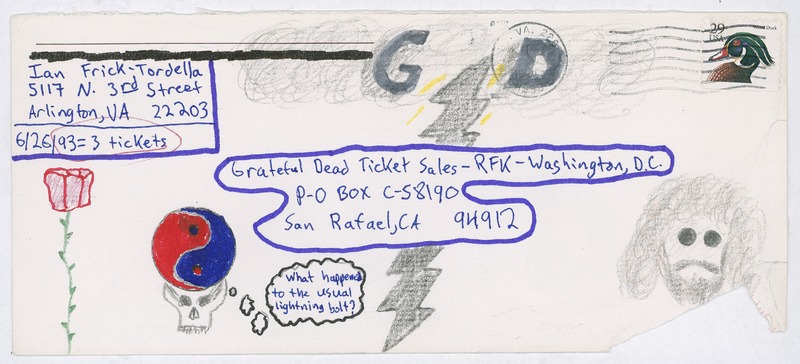 Ian Frick-Tordella
5117 N. 3rd Street
Arlington, VA 22203
6/26/93= 3 tickets
G D
VA. 22
29
USA
Grateful Dead Ticket Sales - RFK - Washington, D.C.
P-O BOX C-58190
San Rafael, CA 94912
What happened
to the usual
lightning bolt?